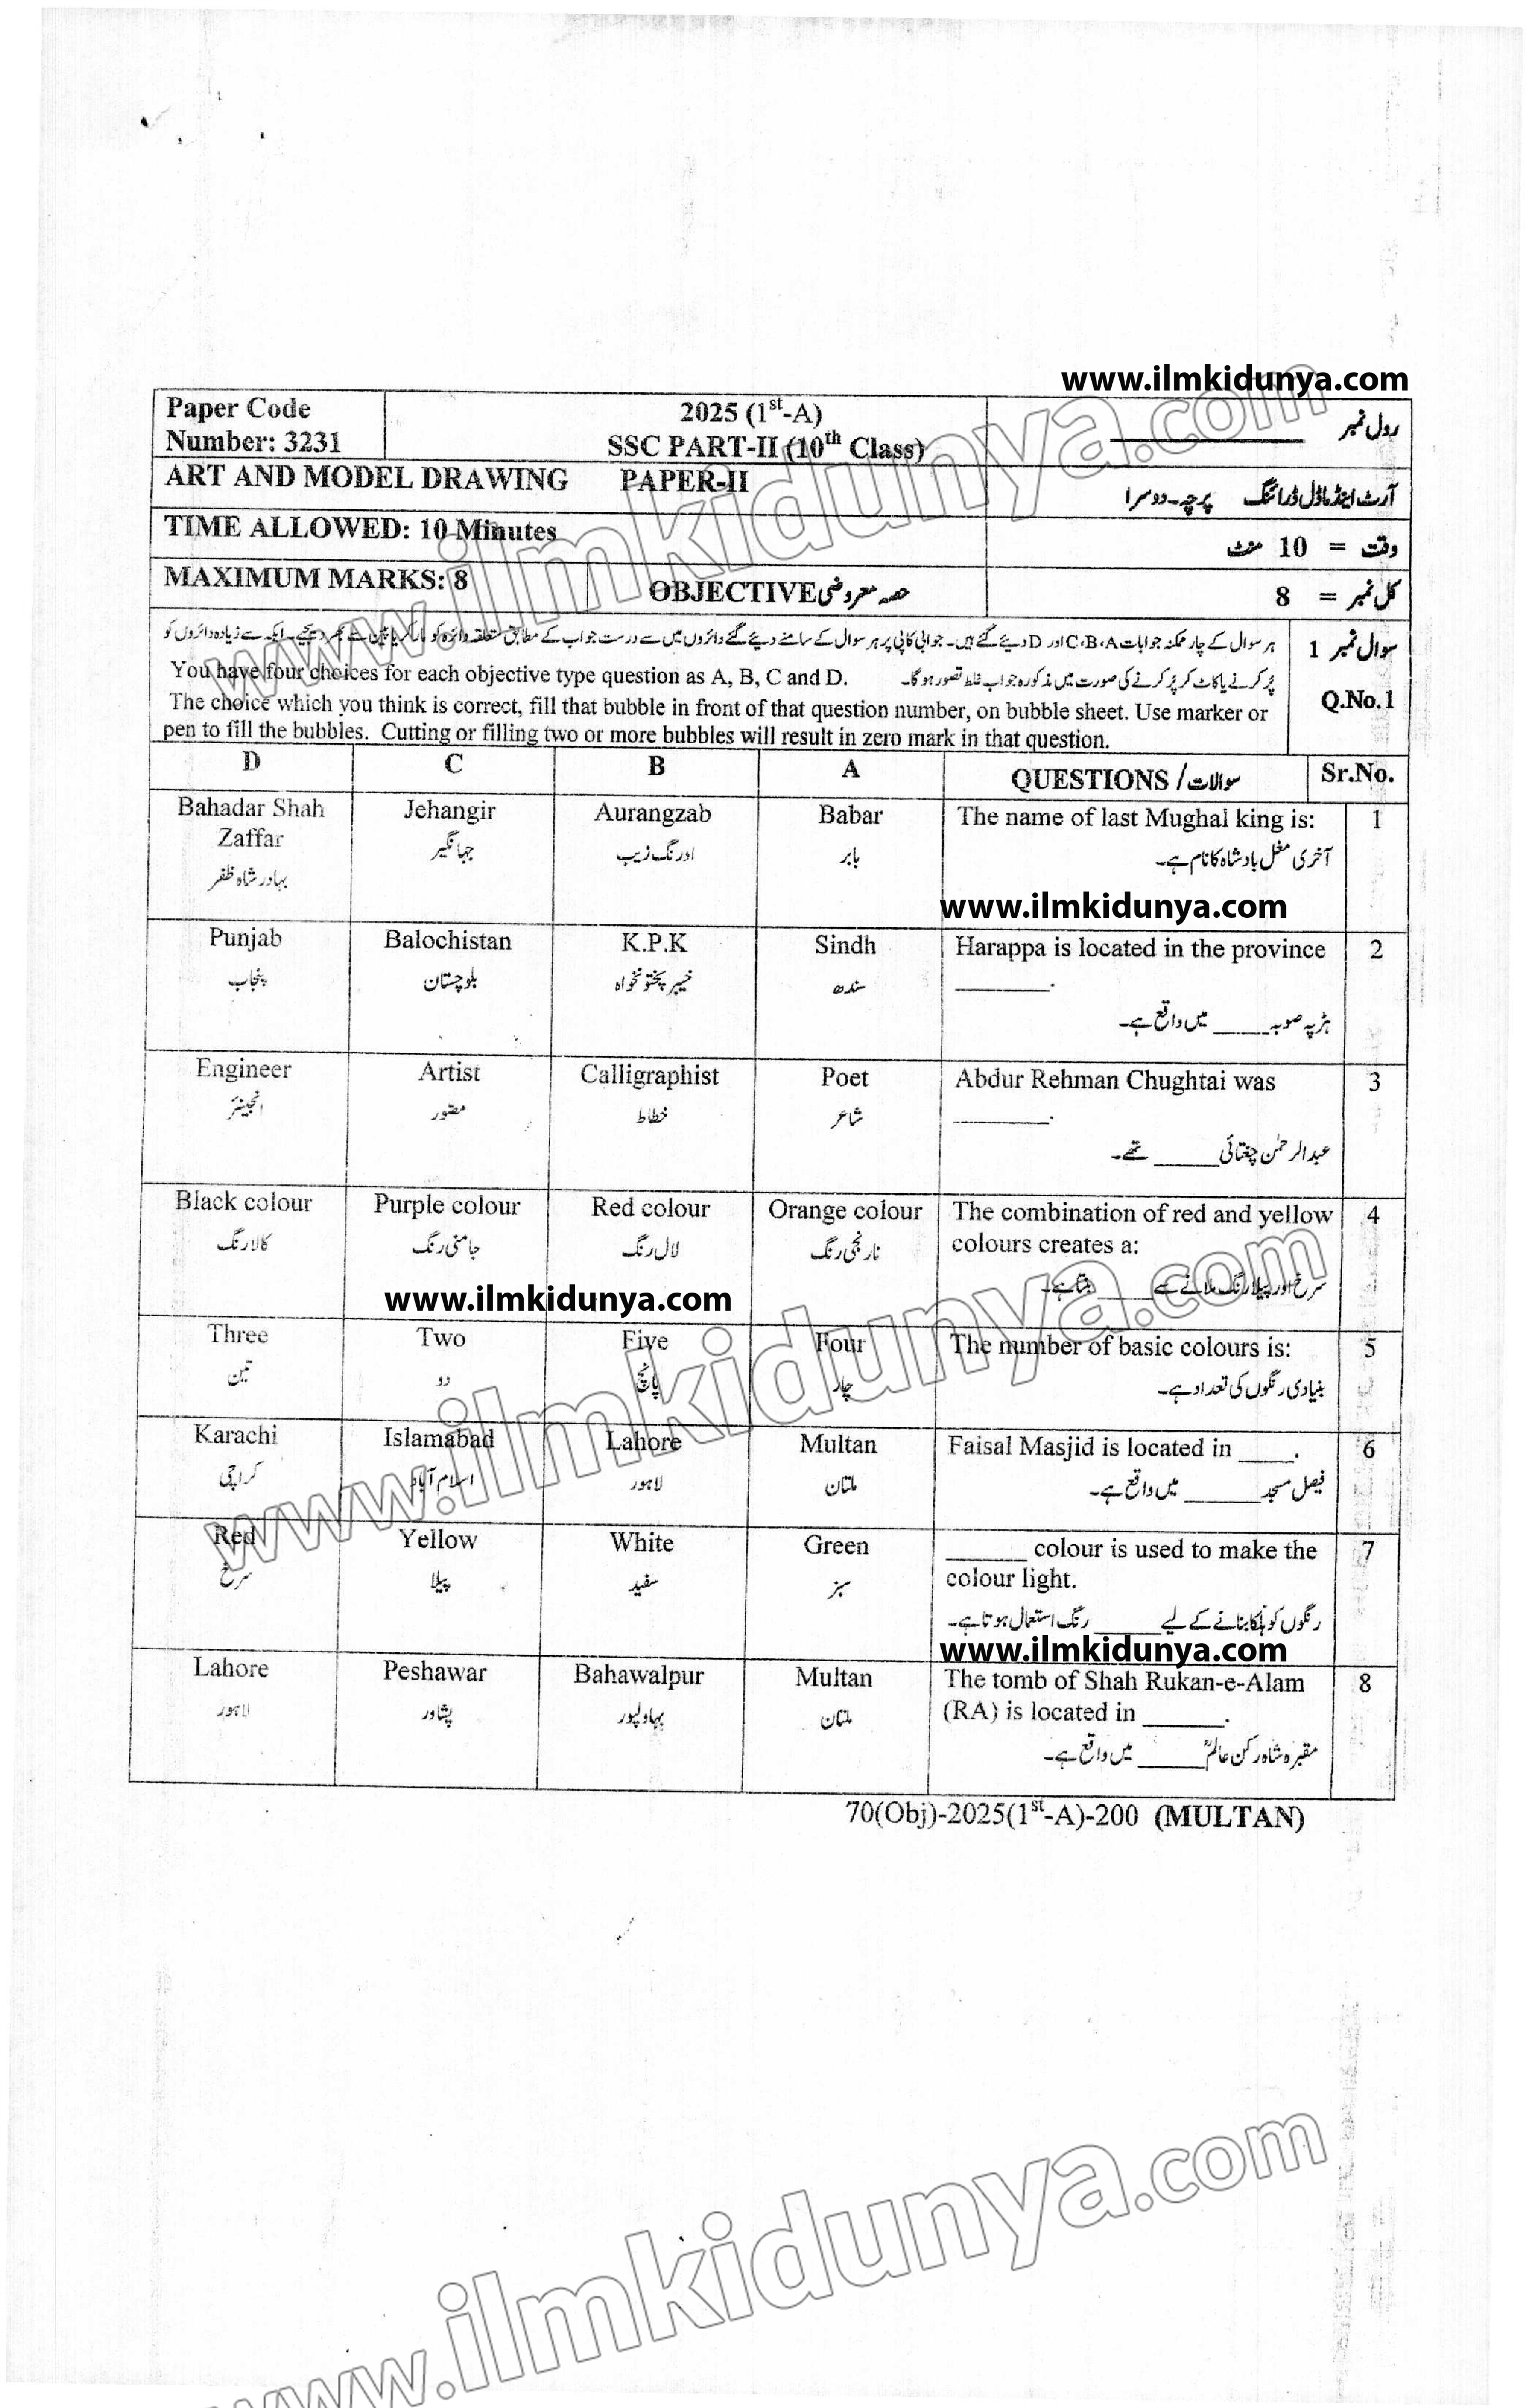 www.ilmkidunya.com
Paper Code
Number: 3231
2025 (1st-A)
SSC PART-II (10th Class)
رول نمبر ____________
ART AND MODEL DRAWING PAPER-II
آرٹ اینڈ ماڈل ڈرائنگ پرچہ۔دوسرا
TIME ALLOWED: 10 Minutes
وقت = 10 منٹ
MAXIMUM MARKS: 8
OBJECTIVE حصہ معروضی
کل نمبر = 8
سوال نمبر 1
ہر سوال کے چار ممکنہ جوابات C،B،A اور D دیئے گئے ہیں۔ جوابی کاپی پر ہر سوال کے سامنے دیئے گئے دائروں میں سے درست جواب کے مطابق متعلقہ دائرہ کو مارکر یا پین سے بھر دیجئے۔ ایک سے زیادہ دائروں کو
پُر کرنے یا کاٹ کر پُر کرنے کی صورت میں مذکورہ جواب غلط تصور ہوگا۔
You have four choices for each objective type question as A, B, C and D.
Q.No.1
The choice which you think is correct, fill that bubble in front of that question number, on bubble sheet. Use marker or
pen to fill the bubbles. Cutting or filling two or more bubbles will result in zero mark in that question.
D C B A QUESTIONS / سوالات Sr.No.
Bahadar Shah Jehangir Aurangzab Babar The name of last Mughal king is: 1
Zaffar
بہادر شاہ ظفر جہانگیر اورنگ زیب بابر آخری مغل بادشاہ کا نام ہے۔
www.ilmkidunya.com
Punjab Balochistan K.P.K Sindh Harappa is located in the province 2
_______.
پنجاب بلوچستان خیبر پختونخواہ سندھ ہڑپہ صوبہ _____ میں واقع ہے۔
Engineer Artist Calligraphist Poet Abdur Rehman Chughtai was 3
_______.
انجینئر مصور خطاط شاعر عبدالرحمٰن چغتائی _____ تھے۔
Black colour Purple colour Red colour Orange colour The combination of red and yellow 4
colours creates a:
کالا رنگ جامنی رنگ لال رنگ نارنجی رنگ سرخ اور پیلا رنگ ملانے سے _____ بنتا ہے۔
www.ilmkidunya.com
Three Two Five Four The number of basic colours is: 5
تین دو پانچ چار بنیادی رنگوں کی تعداد ہے۔
Karachi Islamabad Lahore Multan Faisal Masjid is located in ____. 6
کراچی اسلام آباد لاہور ملتان فیصل مسجد _____ میں واقع ہے۔
Red Yellow White Green ______ colour is used to make the 7
colour light.
سرخ پیلا سفید سبز رنگوں کو ہلکا بنانے کے لیے _____ رنگ استعمال ہوتا ہے۔
www.ilmkidunya.com
Lahore Peshawar Bahawalpur Multan The tomb of Shah Rukan-e-Alam 8
(RA) is located in ______.
لاہور پشاور بہاولپور ملتان مقبرہ شاہ رکن عالمؒ _____ میں واقع ہے۔
70(Obj)-2025(1st-A)-200 (MULTAN)
www.ilmkidunya.com
www.ilmkidunya.com
www.ilmkidunya.com